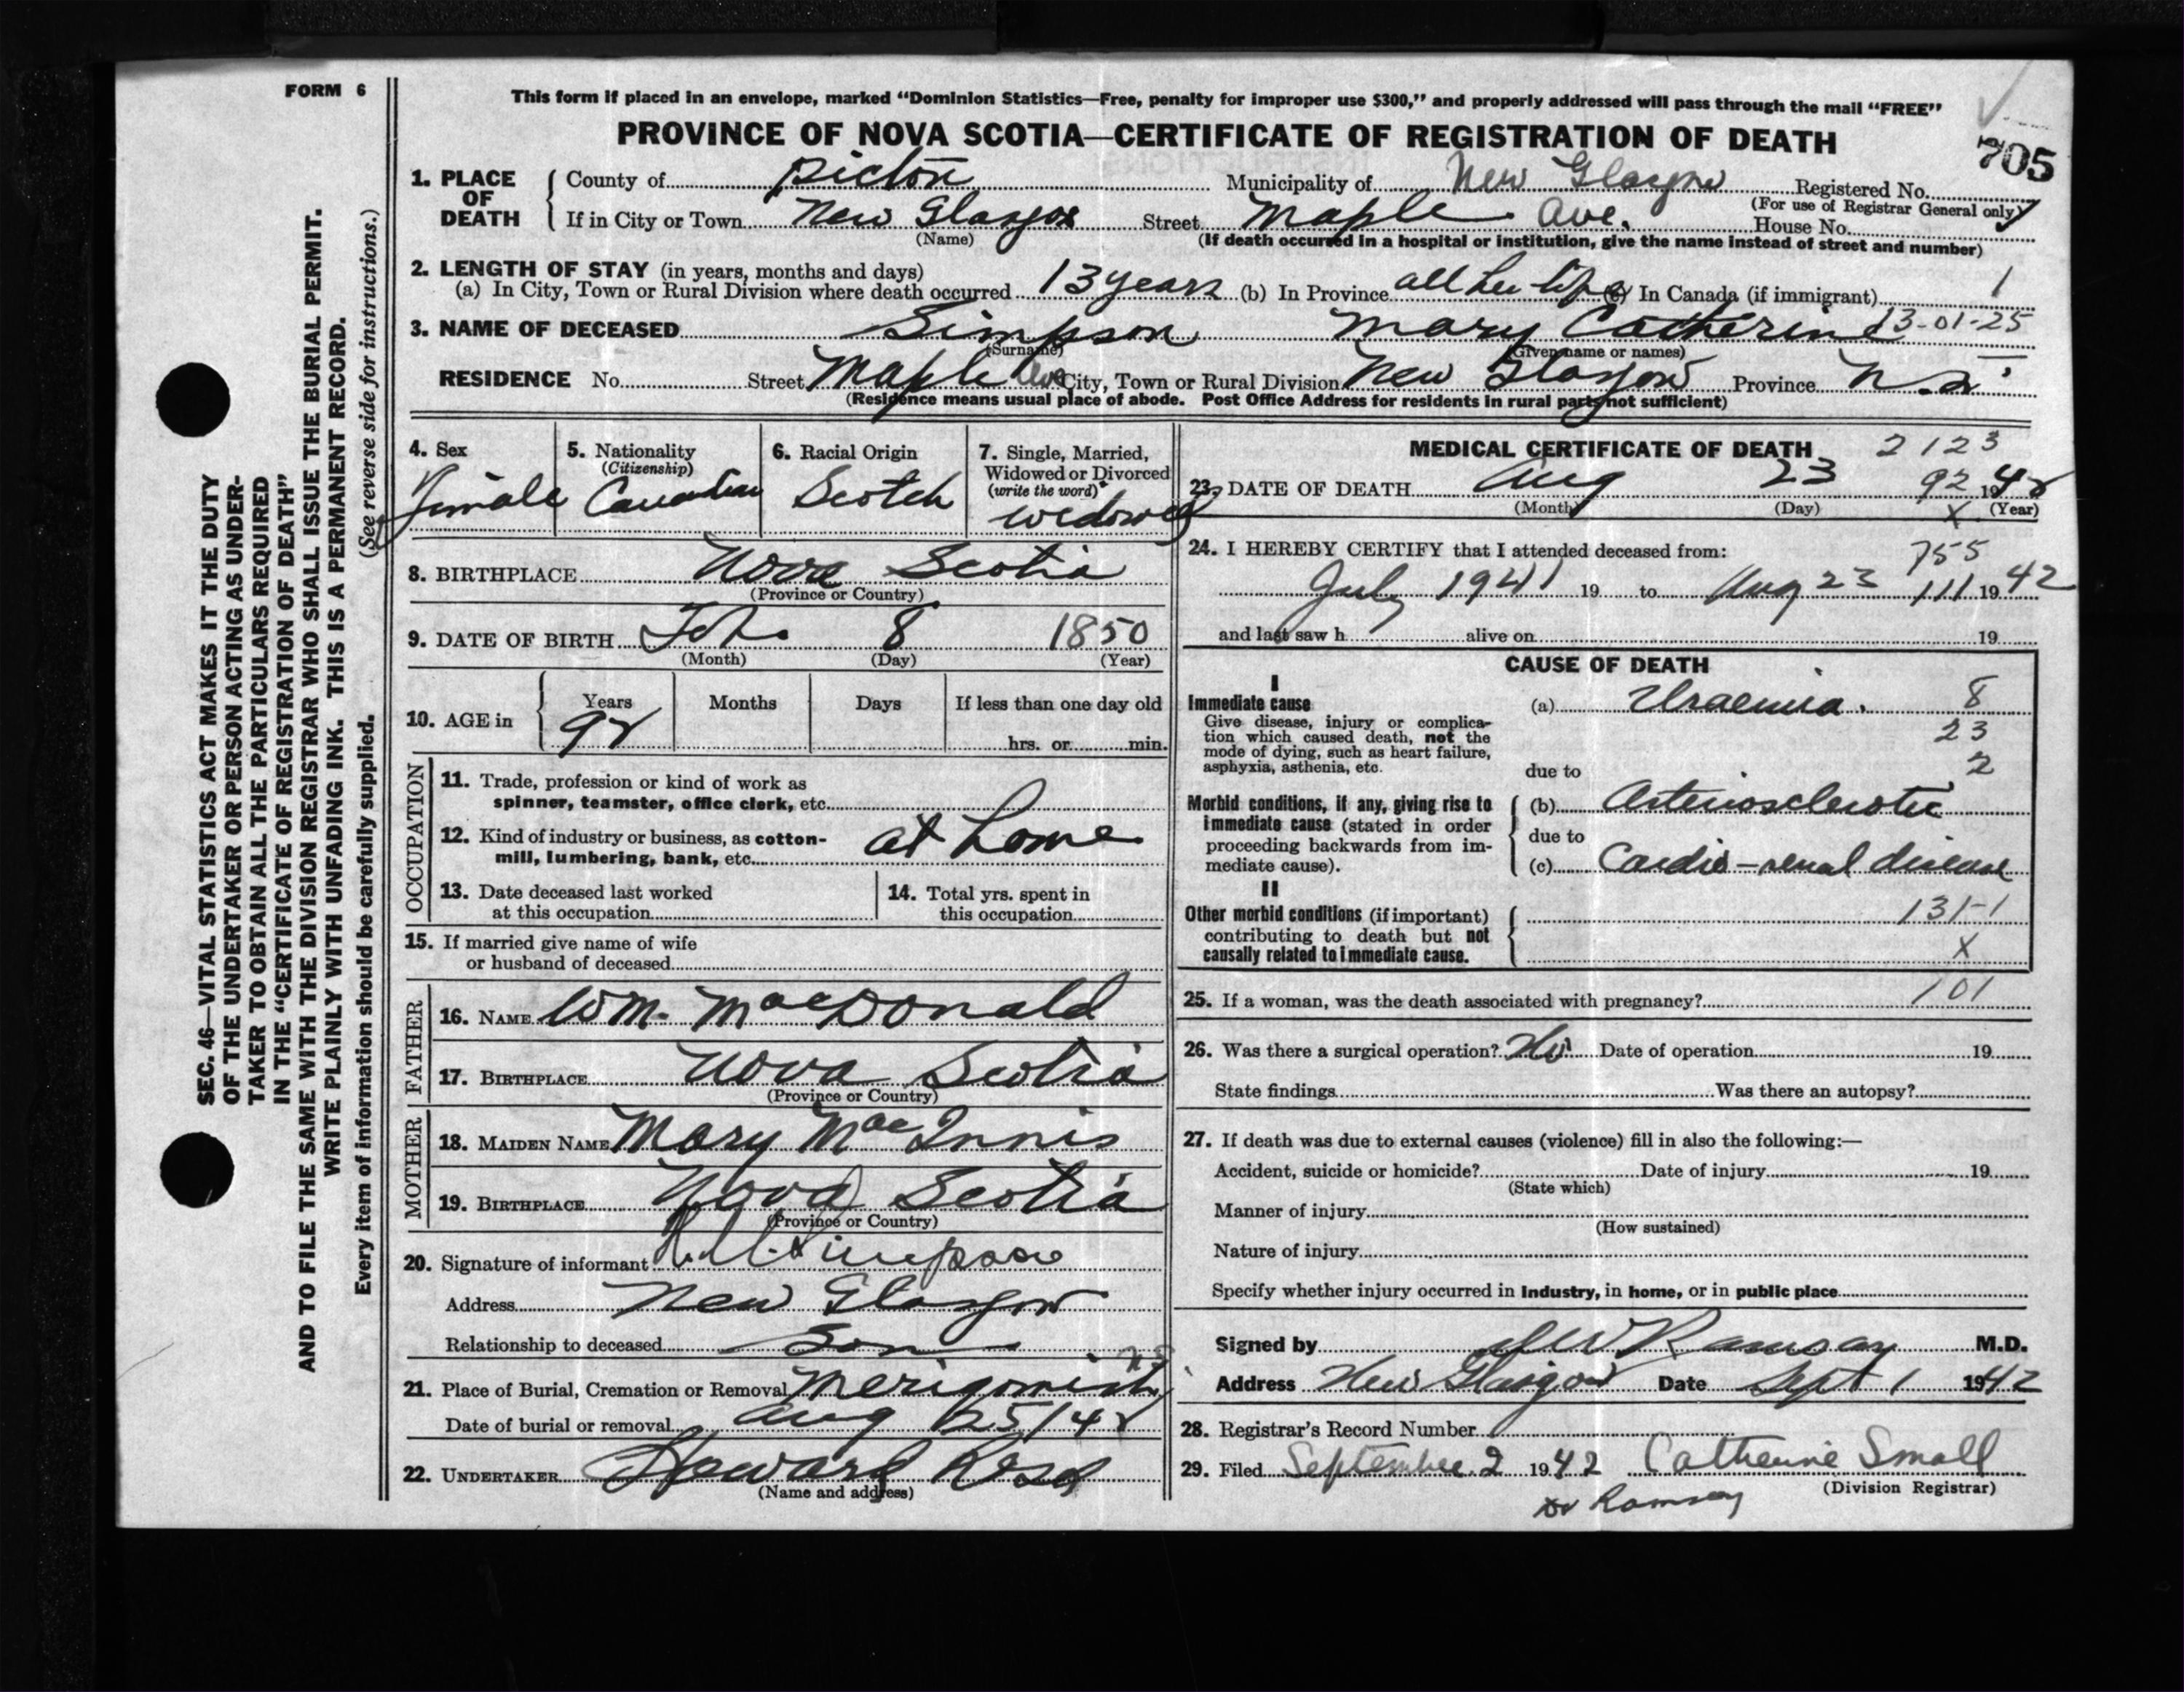 FORM 6
This form if placed in an envelope, marked "Dominion Statistics—Free, penalty for improper use $300," and properly addressed will pass through the mail "FREE"
PROVINCE OF NOVA SCOTIA—CERTIFICATE OF REGISTRATION OF DEATH
705
1. PLACE OF DEATH
County of Pictou Municipality of New Glasgow Registered No.
(For use of Registrar General only)
If in City or Town New Glasgow Street Maple Ave. House No.
(Name) (If death occurred in a hospital or institution, give the name instead of street and number)
2. LENGTH OF STAY (in years, months and days)
(a) In City, Town or Rural Division where death occurred 13 years (b) In Province all her life (c) In Canada (if immigrant) 1
3. NAME OF DECEASED Simpson Mary Catherine 13-01-25
(Surname) (Given name or names)
RESIDENCE No. Street Maple Ave City, Town or Rural Division New Glasgow Province N.S.
(Residence means usual place of abode. Post Office Address for residents in rural parts not sufficient)
4. Sex
Female
5. Nationality
(Citizenship)
Canadian
6. Racial Origin
Scotch
7. Single, Married,
Widowed or Divorced
(write the word)
widowed
8. BIRTHPLACE Nova Scotia
(Province or Country)
9. DATE OF BIRTH Feb. 8 1850
(Month) (Day) (Year)
10. AGE in
Years Months Days If less than one day old
92 hrs. or min.
OCCUPATION
11. Trade, profession or kind of work as
spinner, teamster, office clerk, etc.
12. Kind of industry or business, as cotton-
mill, lumbering, bank, etc. at home
13. Date deceased last worked
at this occupation
14. Total yrs. spent in
this occupation
15. If married give name of wife
or husband of deceased
FATHER
16. NAME Wm. MacDonald
17. BIRTHPLACE Nova Scotia
(Province or Country)
MOTHER
18. MAIDEN NAME Mary MacInnis
19. BIRTHPLACE Nova Scotia
(Province or Country)
20. Signature of informant Simpson
Address New Glasgow
Relationship to deceased Son
21. Place of Burial, Cremation or Removal Merigomish N.S.
Date of burial or removal Aug 25/42
22. UNDERTAKER Howard
(Name and address)
MEDICAL CERTIFICATE OF DEATH 2123
23. DATE OF DEATH Aug 23 92 1942
(Month) (Day) X (Year)
24. I HEREBY CERTIFY that I attended deceased from: 755
July 1941 19 to Aug 23 111 1942
and last saw h alive on 19
CAUSE OF DEATH
I
Immediate cause
Give disease, injury or complica-
tion which caused death, not the
mode of dying, such as heart failure,
asphyxia, asthenia, etc.
(a) Uraemia. 8
23
2
due to
Morbid conditions, if any, giving rise to
immediate cause (stated in order
proceeding backwards from im-
mediate cause).
(b) Arteriosclerotic
due to
(c) Cardio-renal disease
II
Other morbid conditions (if important)
contributing to death but not
causally related to immediate cause.
131-1
X
25. If a woman, was the death associated with pregnancy? 101
26. Was there a surgical operation? No Date of operation 19
State findings Was there an autopsy?
27. If death was due to external causes (violence) fill in also the following:—
Accident, suicide or homicide? Date of injury 19
(State which)
Manner of injury
(How sustained)
Nature of injury
Specify whether injury occurred in Industry, in home, or in public place
Signed by Ramsay M.D.
Address New Glasgow Date Sept 1 1942
28. Registrar's Record Number
29. Filed September 2 1942 Catherine Small
(Division Registrar)
Dr Ramsay
SEC. 46—VITAL STATISTICS ACT MAKES IT THE DUTY
OF THE UNDERTAKER OR PERSON ACTING AS UNDER-
TAKER TO OBTAIN ALL THE PARTICULARS REQUIRED
IN THE "CERTIFICATE OF REGISTRATION OF DEATH"
AND TO FILE THE SAME WITH THE DIVISION REGISTRAR WHO SHALL ISSUE THE BURIAL PERMIT.
WRITE PLAINLY WITH UNFADING INK. THIS IS A PERMANENT RECORD.
Every item of information should be carefully supplied. (See reverse side for instructions.)